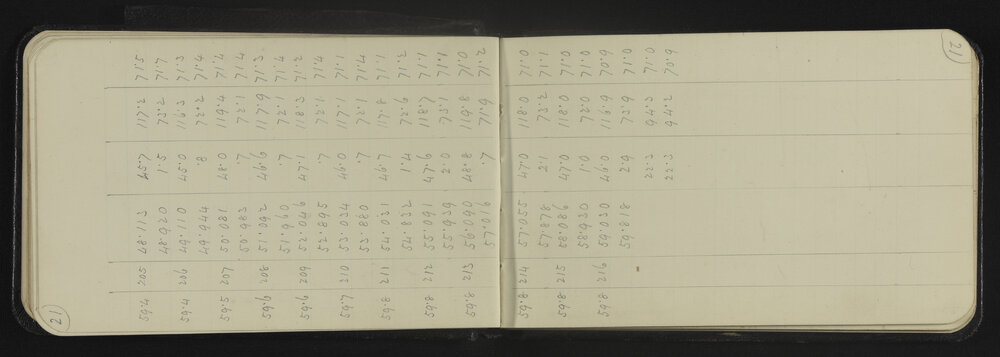 21
59.4 205 48.113 45.7 117.2 71.5
48.920 1.5 73.2 71.7
59.4 206 49.110 45.0 116.3 71.3
49.944 .8 72.2 71.4
59.5 207 50.081 48.0 119.4 71.4
50.983 .7 72.1 71.4
59.6 208 51.092 46.6 117.9 71.3
51.960 .7 72.1 71.4
59.6 209 52.046 47.1 118.3 71.2
52.895 .7 72.1 71.4
59.7 210 53.034 46.0 117.1 71.1
53.880 .7 72.1 71.4
59.8 211 54.031 46.7 117.8 71.1
54.832 1.4 72.6 71.2
59.8 212 55.091 47.6 118.7 71.1
55.939 2.0 73.1 71.1
59.8 213 56.090 48.8 119.8 71.0
57.016 .7 71.9 71.2
59.8 214 57.055 47.0 118.0 71.0
57.878 2.1 73.2 71.1
59.8 215 58.086 47.0 118.0 71.0
58.930 1.0 72.0 71.0
59.8 216 59.030 46.0 116.9 70.9
59.818 2.9 73.9 71.0
22.3 94.3 71.0
22.3 94.2 70.9
21